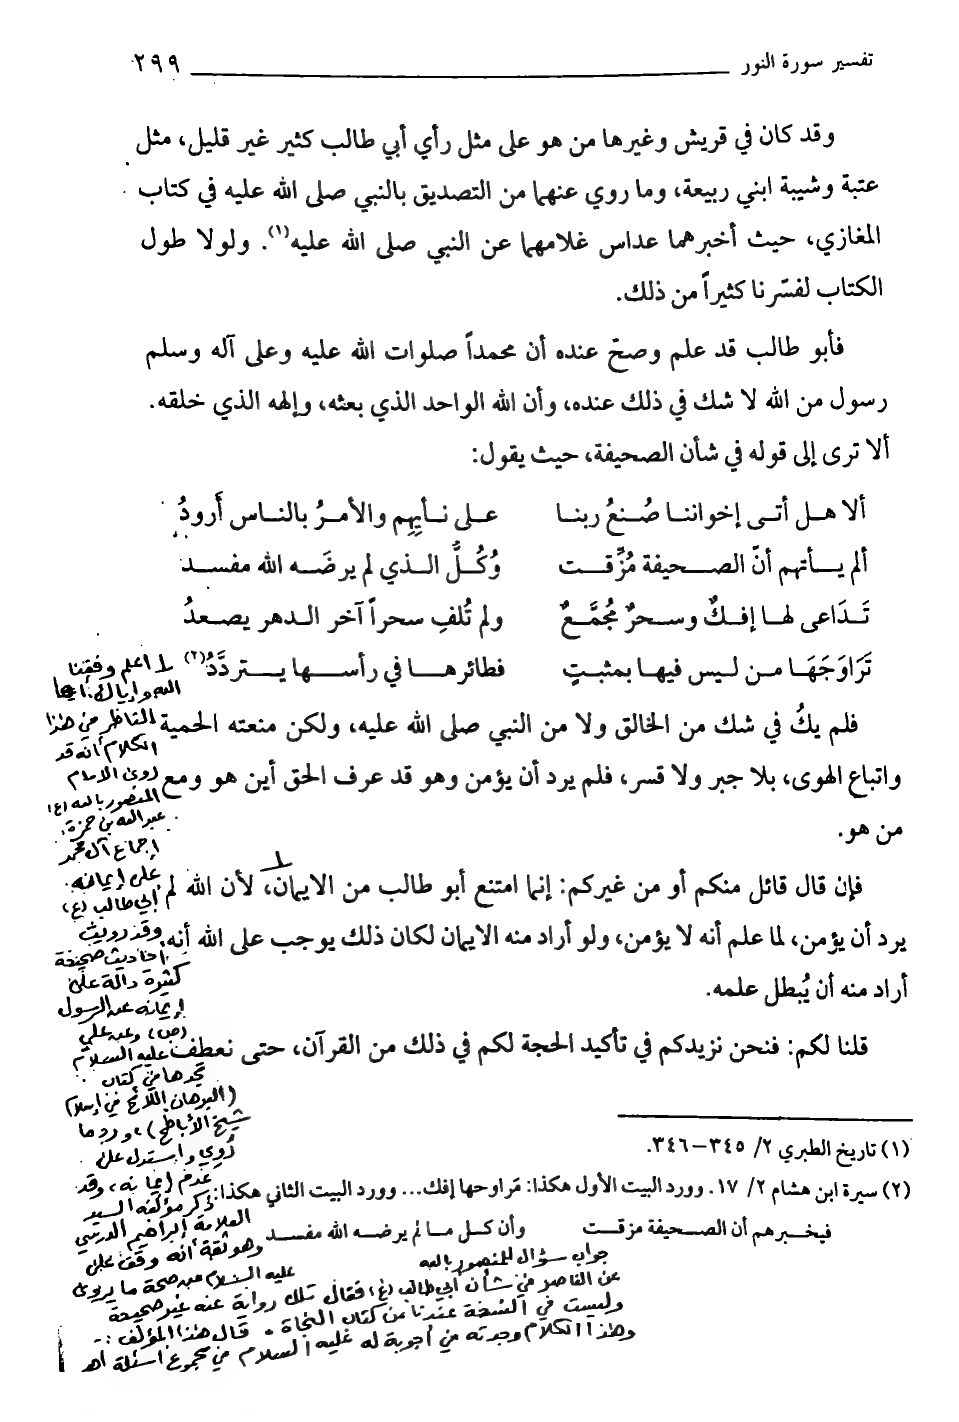 تفسير سورة النور ٢٩٩
وقد كان في قريش وغيرها من هو على مثل رأي أبي طالب كثير غير قليل، مثل
عتبة وشيبة ابني ربيعة، وما روي عنهما من التصديق بالنبي صلى الله عليه في كتاب
المغازي، حيث أخبرهما عداس غلامهما عن النبي صلى الله عليه(١). ولولا طول
الكتاب لفسّرنا كثيراً من ذلك.
فأبو طالب قد علم وصحّ عنده أن محمداً صلوات الله عليه وعلى آله وسلم
رسول من الله لا شك في ذلك عنده، وأن الله الواحد الذي بعثه، وإلهه الذي خلقه.
ألا ترى إلى قوله في شأن الصحيفة، حيث يقول:
ألا هل أتى إخواننا صُنعُ ربنا على نأيِهِم والأمرُ بالناس أَرودُ
ألم يأتهم أنّ الصحيفة مُزِّقت وُكُلُّ الذي لم يرضَه الله مفسد
تَدَاعى لها إفكٌ وسحرٌ مُجمَّعٌ ولم تُلفِ سحراً آخر الدهر يصعدُ
تَرَاوَجَهَا من ليس فيها بمثبتٍ فطائرها في رأسها يتردَّدُ(٢)
فلم يكُ في شك من الخالق ولا من النبي صلى الله عليه، ولكن منعته الحمية
واتباع الهوى، بلا جبر ولا قسر، فلم يرد أن يؤمن وهو قد عرف الحق أين هو ومع
من هو.
فإن قال قائل منكم أو من غيركم: إنما امتنع أبو طالب من الايمان، لأن الله لم
يرد أن يؤمن، لما علم أنه لا يؤمن، ولو أراد منه الايمان لكان ذلك يوجب على الله أنه
أراد منه أن يُبطل علمه.
قلنا لكم: فنحن نزيدكم في تأكيد الحجة لكم في ذلك من القرآن، حتى نعطف
(١) تاريخ الطبري ٢/ ٣٤٥-٣٤٦.
(٢) سيرة ابن هشام ٢/ ١٧. وورد البيت الأول هكذا: تراوحها إفك... وورد البيت الثاني هكذا:
فيخبرهم أن الصحيفة مزقت وأن كل ما لم يرضه الله مفسد
اعلم وفقنا
الله وإياك أيها
الناظر في هذا
الكلام أنه قد
روى الإمام
المنصور بالله (ع)
عبدالله بن حمزة
إجماع آل محمد
على إيمانه
أبي طالب (ع)
وقد رويت
أحاديث صحيحة
كثيرة دالة على
إيمانه عن الرسول
(ص) وعن علي
عليه السلام
تجدها في كتاب
(البرهان اللائح في إسلام
شيخ الأباطح)، ورد ما
رُوي واستدل على
عدم إيمانه، وقد
ذكر مؤلفه السيد
العلامة إبراهيم الدرسي
وهو ثقة أنه وقف على
جواب سؤال للمنصور بالله
عليه السلام عن صحة ما يروى
عن الناصر في شأن أبي طالب (ع) فقال تلك رواية عنه غير صحيحة
وليست في النسخة عندنا من كتاب النجاة. قال هذا المؤلف:
وهذا الكلام وجدته في أجوبة له عليه السلام في مجموع أسئلة اهـ